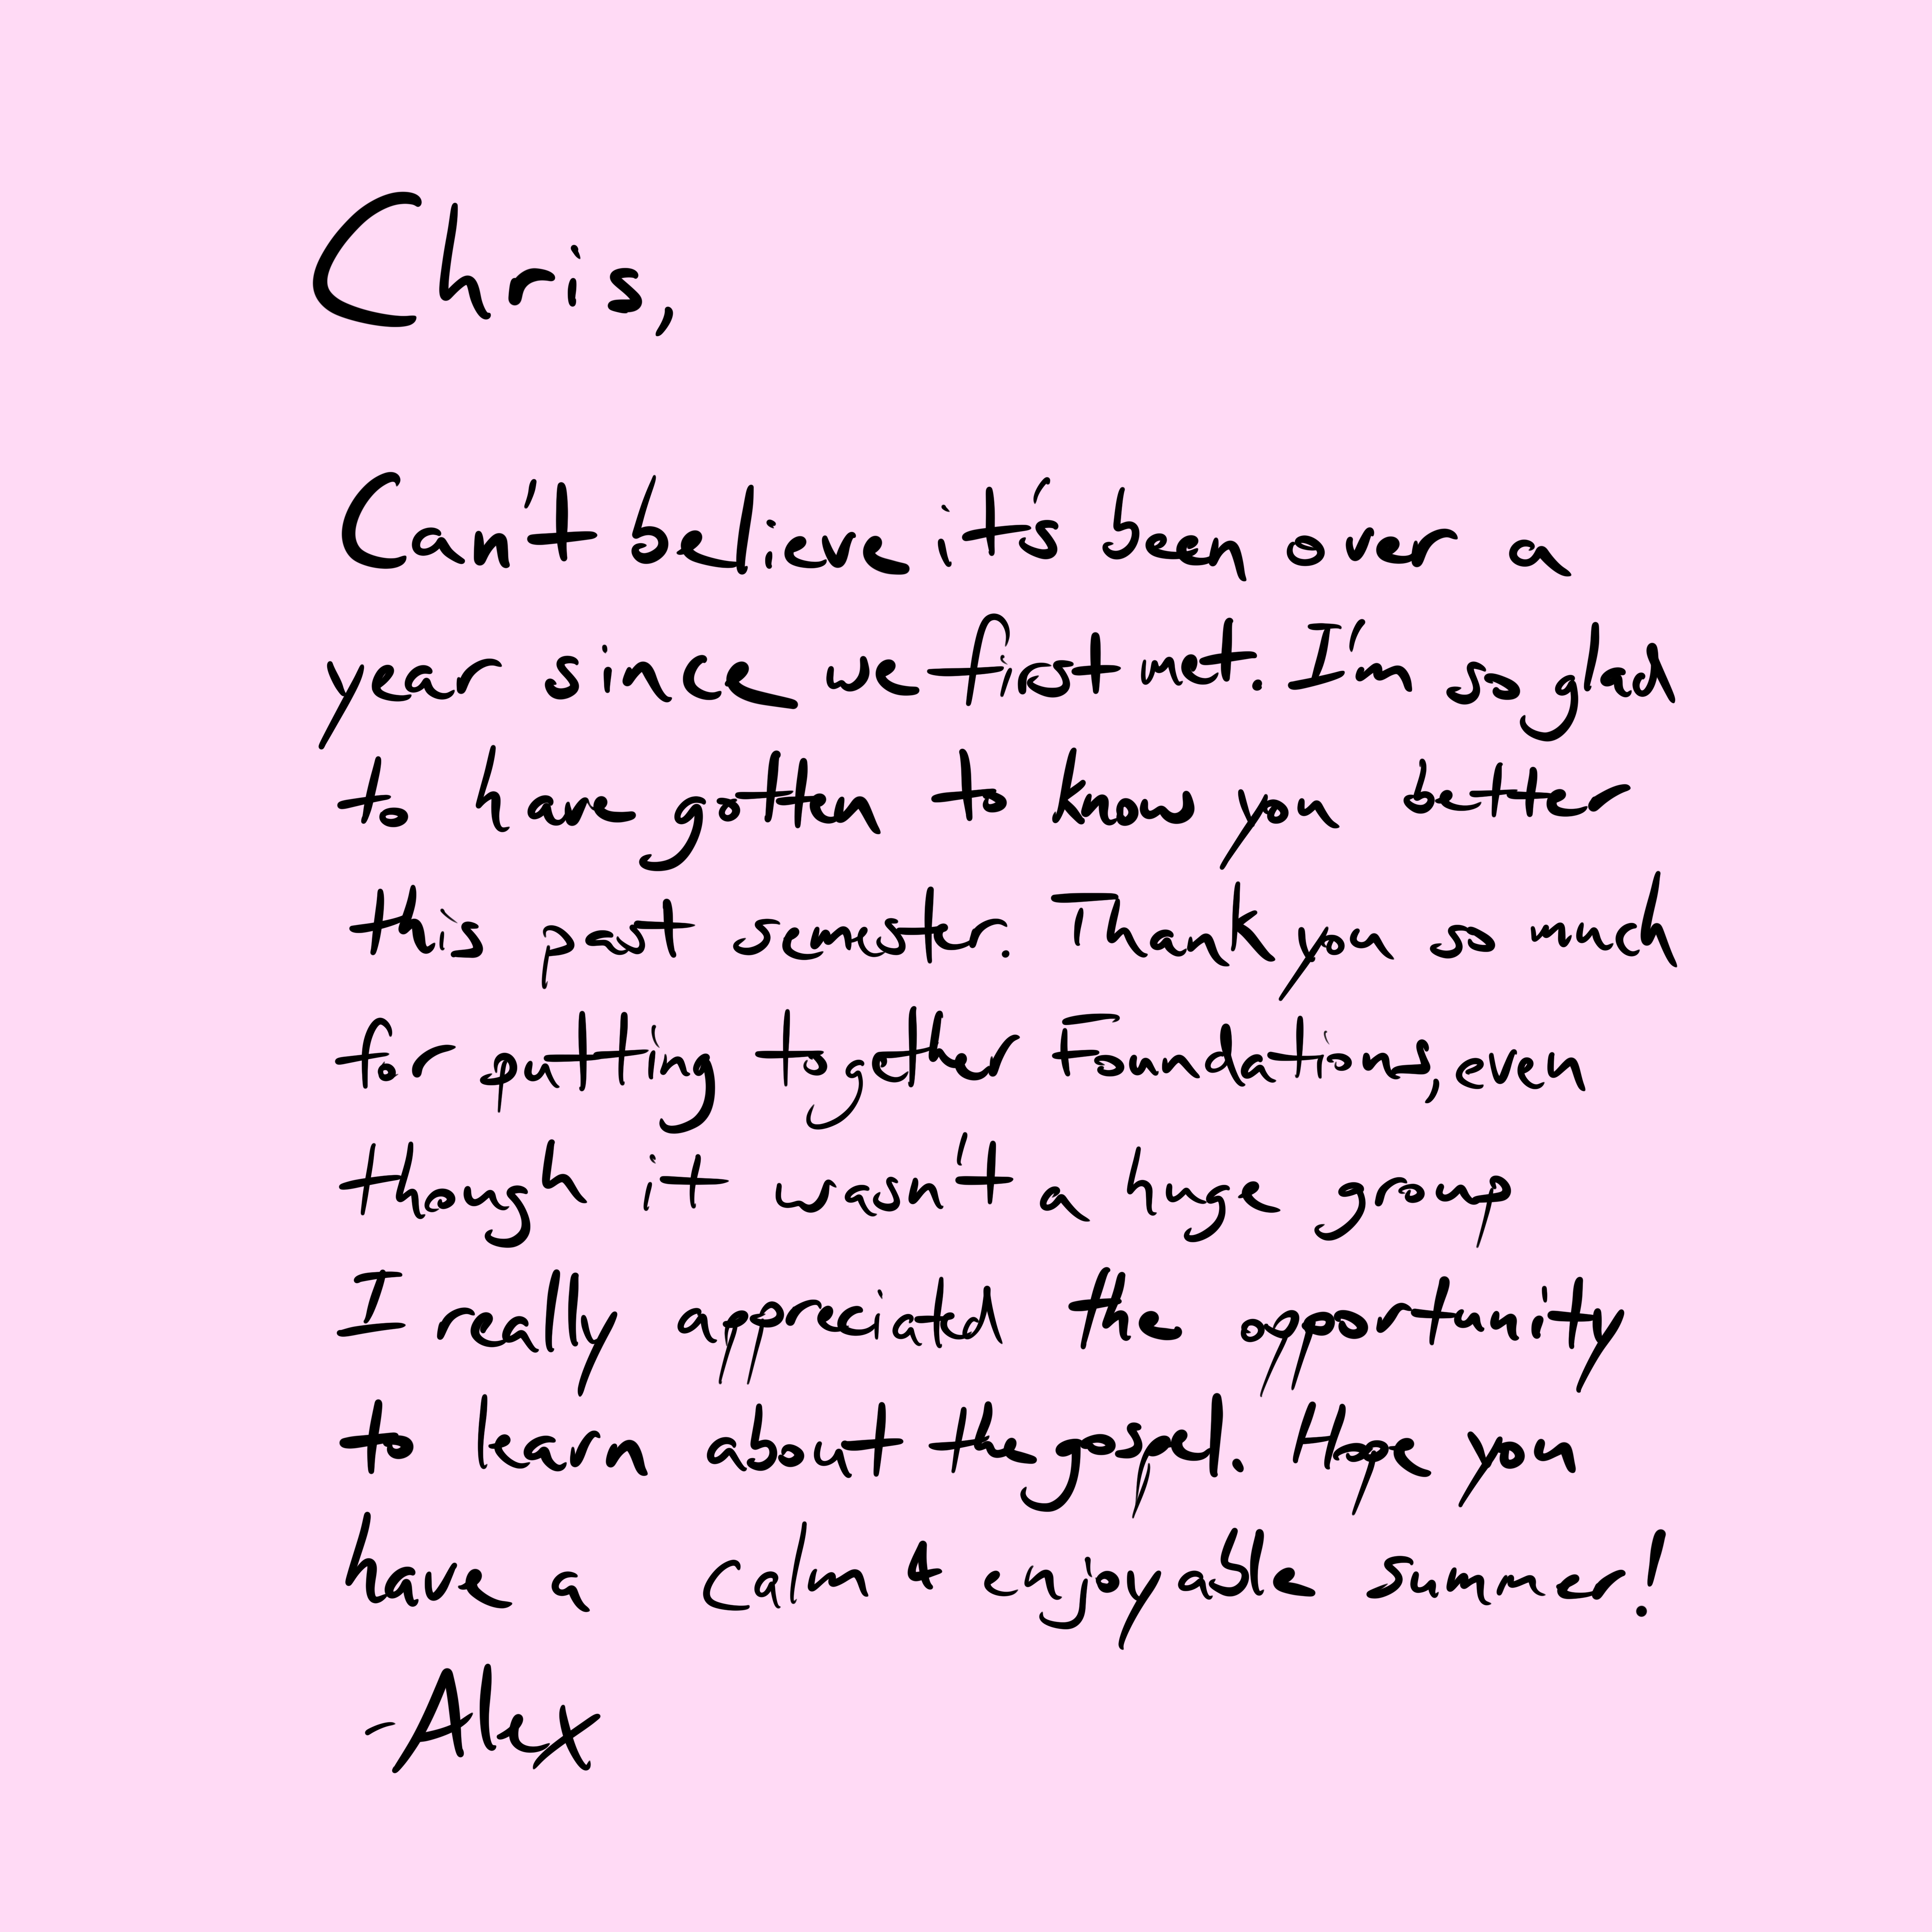 Chris,
Can't believe it's been over a
year since we first met. I'm so glad
to have gotten to know you better
this past semester. Thank you so much
for putting together Foundations, even
though it wasn't a huge group
I really appreciated the opportunity
to learn about the gospel. Hope you
have a calm & enjoyable summer!
-Alex